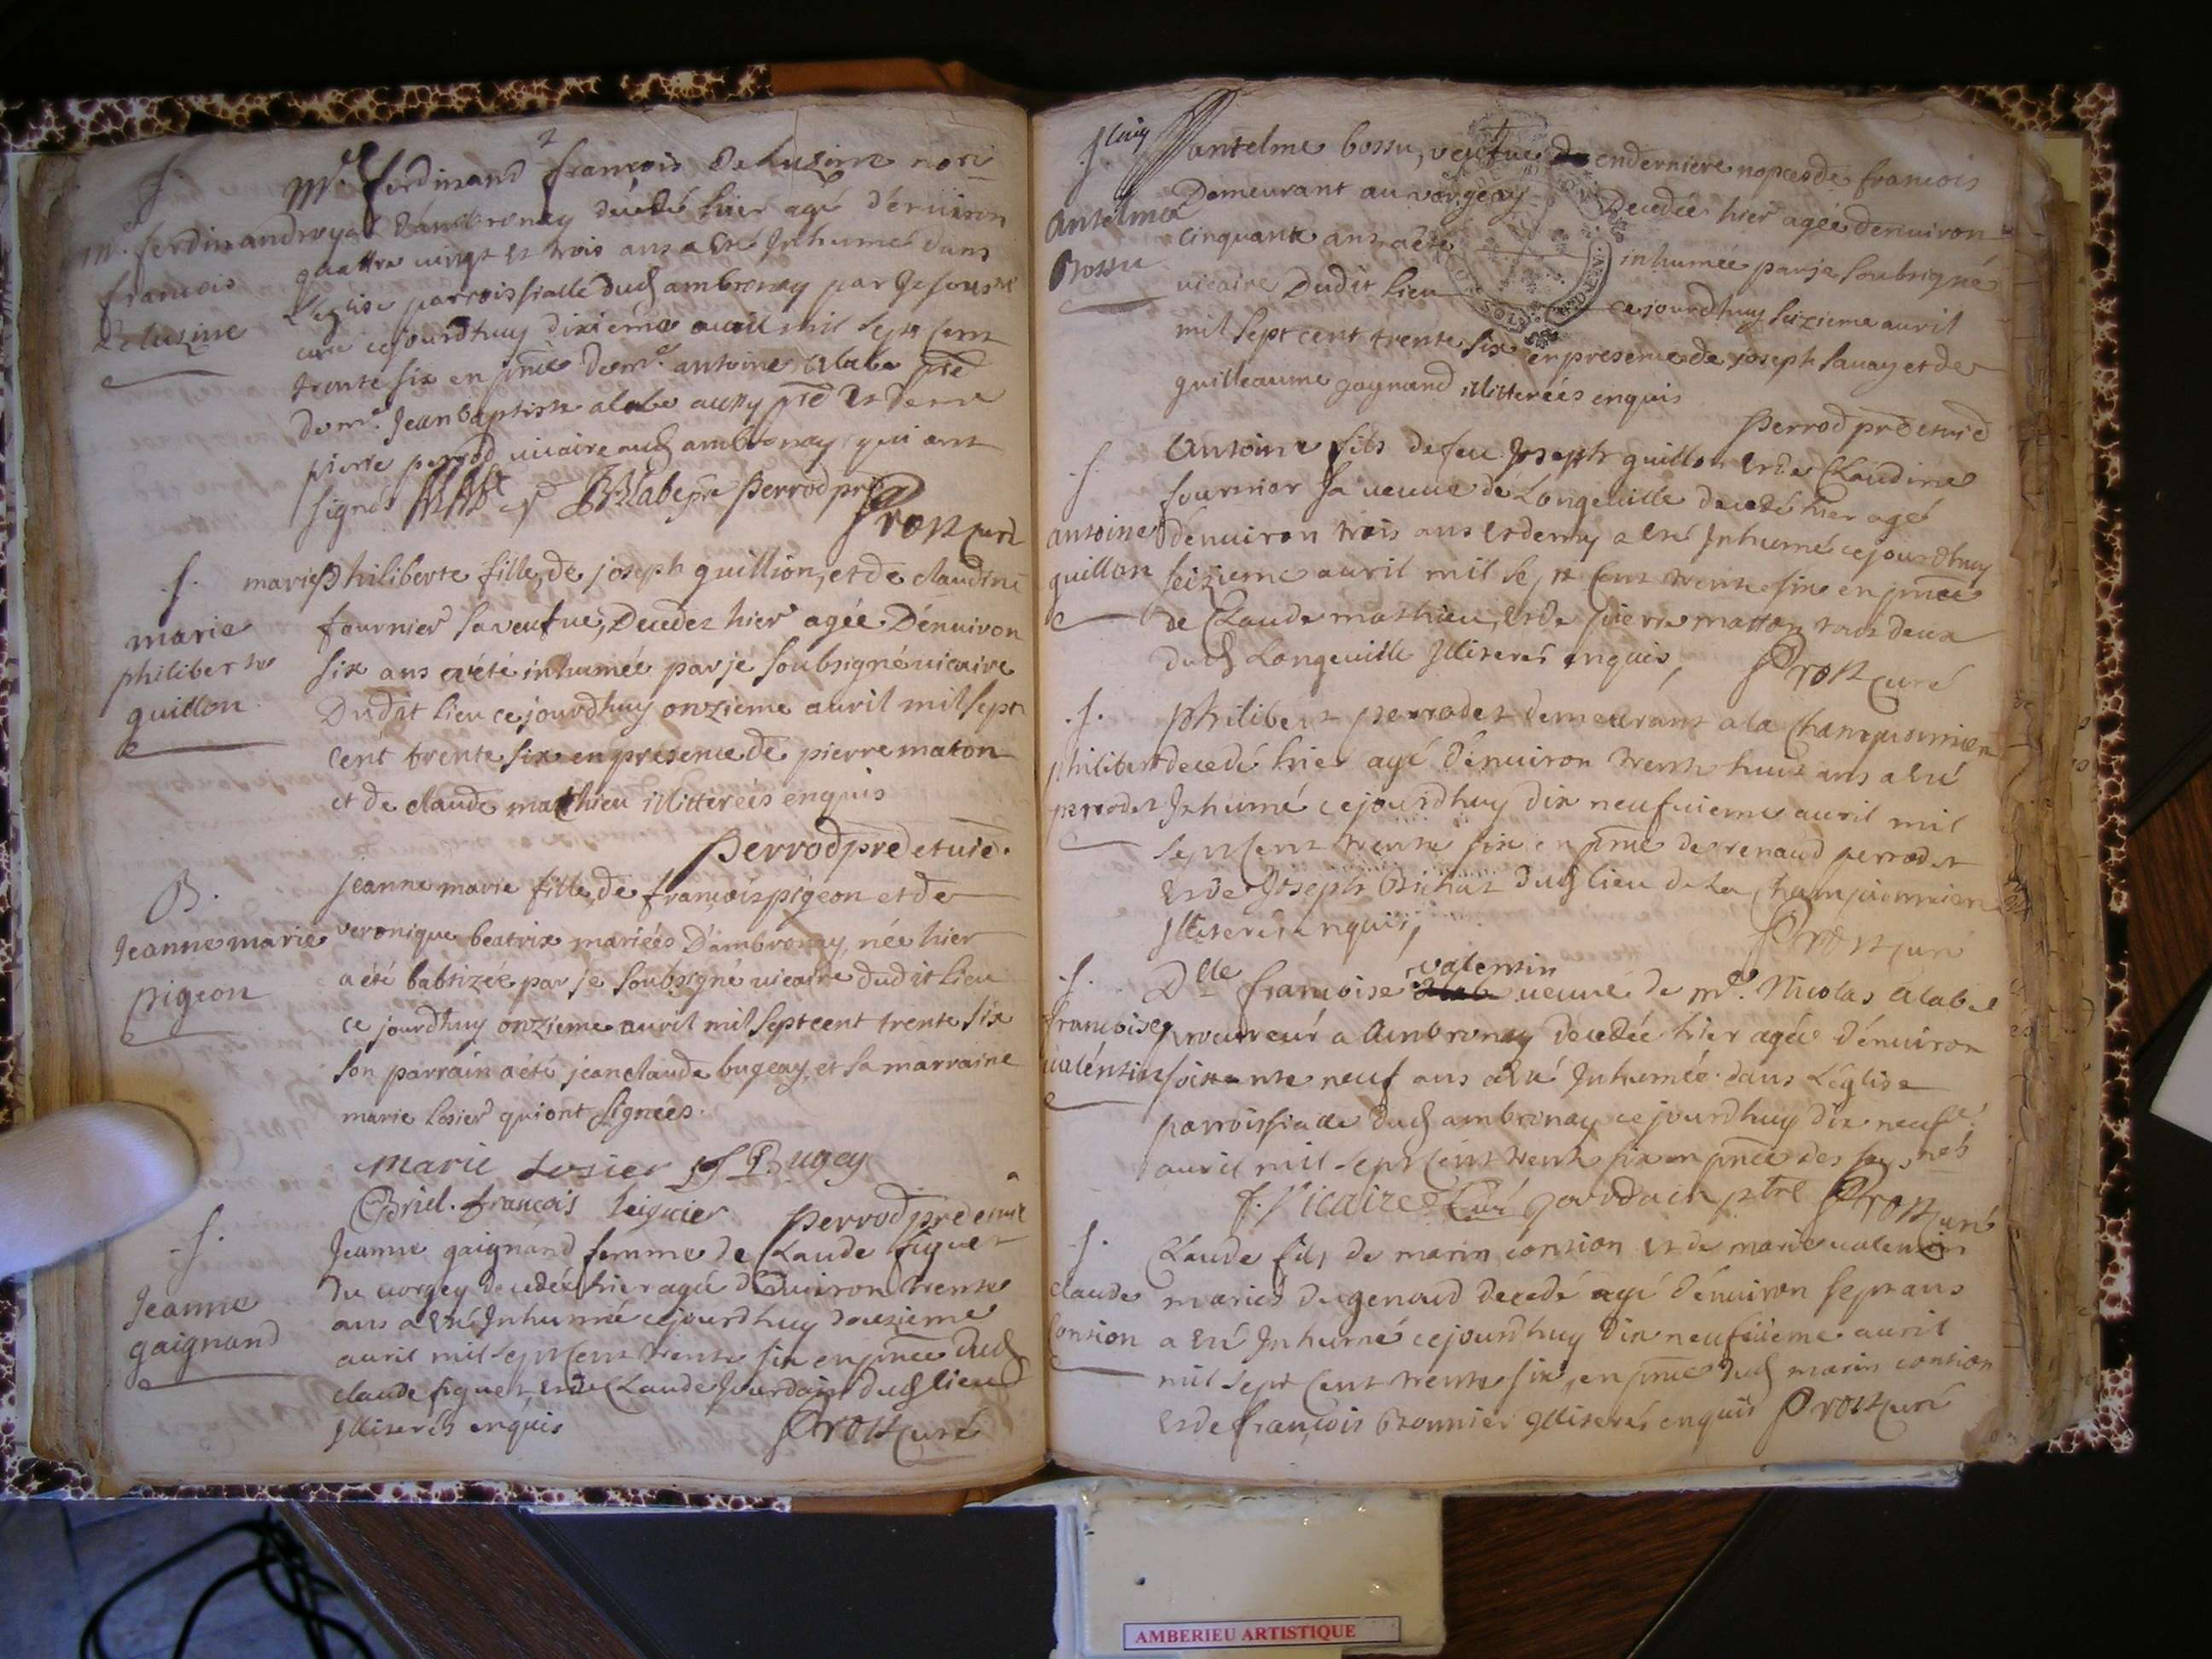 S.
Mr. ferdinand
francois
Delusine
Mre. ferdinand francois Delusine nore
royal d'ambronay décédé hier agé d'enuiron
quattre uingt et trois ans a esté Inhumé dans
L'eglise parroissialle dud ambronay par Je
curé cejourdhuy dixiéme auril mil sept cent
trente six en pnce de mr. antoine alabe pre
de mr. Jean baptiste alabe aussy pre et de mr
pierre perrod uicaire aud ambronay qui ont
signés Perrod pre
Prost curé
S.
marie
philiberte
guillon
marie philiberte fille de joseph guillion, et de claudine
fournier sa veufue, Decedez hier agée D'enuiron
six ans a été inhumée par je soubsigné uicaire
Dudit lieu ce jourdhuy onzieme auril mil sept
cent trente six en presence de pierre maton
et de claude matthieu illitterées enquis
Perrod pre et uic.
B.
Jeanne marie
pigeon
jeanne marie fille de francois pigeon et de
veronique beatrix mariées D'ambronay, née hier
a été babtizée par je soubsigné uicaire dudit lieu
ce jourdhuy onzieme auril mil sept cent trente six
son parrain a été jean claude bugeay et sa marraine
marie losier qui ont signées.
marie Losier Bugey
francois Perrod pre et uic
S.
Jeanne
gaignand
Jeanne gaignand femme de Claude figuet
du uorgey decedée hier agée d'enuiron trente
ans a esté Inhumé cejourdhuy douzieme
auril mil sept cent trente six en pnce dud
claude figuet et de Claude Jourdain dud lieu
Illiterés enquis Prost curé
S.
Antelme
Bossu
antelme bossu, veufue en derniere nopces de francois
Demeurant au vorgeay Decedée hier agée denuiron
cinquante ans a été inhumée par je soubsigné
uicaire Dudit lieu ce jourdhuy seizieme auril
mil sept cent trente six en presence de joseph sauay et de
guilleaume gagnand illitterées enquis
Perrod pre et uic
S.
antoine
guillon
Antoine fils de feu Joseph guillon et de Claudine
fournier sa ueuue de Longeuille decedé hier agé
d'enuiron trois ans et demy a esté Inhumé cejourdhuy
seizieme auril mil sept cent trente six en pnce
de Claude mathieu, et de pierre matton tous deux
dud Longeuille Illiterés enquis, Prost curé
S.
philibert
perrodet
philibert perrodet demeurant a la Championnien
decedé hier agé d'enuiron trente huit ans a esté
Inhumé cejourdhuy dix neufuieme auril mil
sept cent trente six en pnce de renaud perrodet
et de Joseph Bichat dud lieu de La Championnien
Illiterés enquis, Prost curé
S.
francoise
ualéntin
valentin
Dlle francoise ueuue de mr. Nicolas alabe
procureur a Ambronay decedée hier agée d'enuiron
soixante neuf ans a esté Inhumée dans L'église
parroissialle dud ambronay cejourdhuy dix neufe.
auril mil sept cent trente six en pnce des sousnés
f. Vicaire Curé jourdain ptre Prost curé
S.
claude
Consion
Claude fils de marin consion et de marie ualentin
mariés du genoud decedé agé d'enuiron sept ans
a esté Inhumé cejourdhuy dix neufuieme auril
mil sept cent trente six, en pnce dud marin consion
et de francois Bonnier Illiterés enquis Prost curé
AMBERIEU ARTISTIQUE